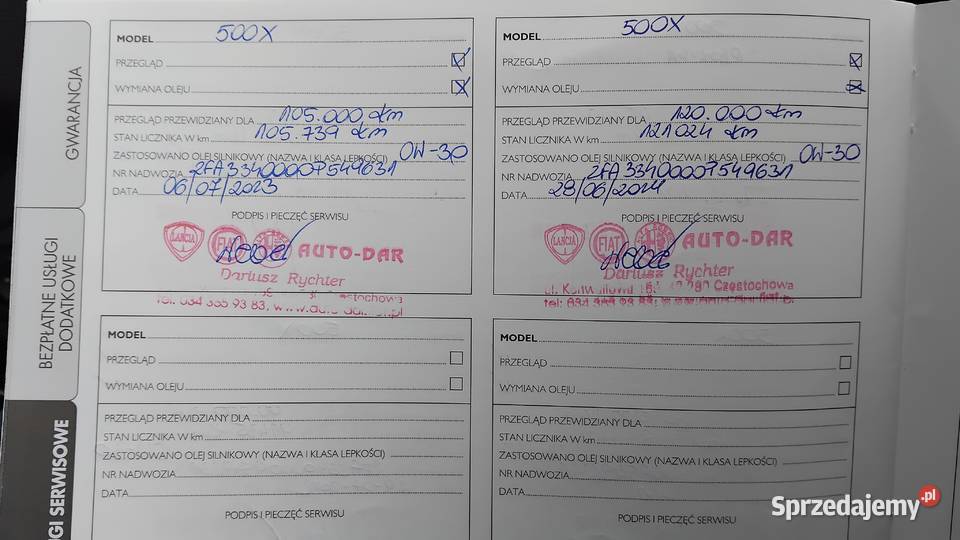 GWARANCJA
BEZPŁATNE USŁUGI
DODATKOWE
GI SERWISOWE
MODEL 500X
PRZEGLĄD
WYMIANA OLEJU
PRZEGLĄD PRZEWIDZIANY DLA 105.000 km
STAN LICZNIKA W km 105.739 km
ZASTOSOWANO OLEJ SILNIKOWY (NAZWA I KLASA LEPKOŚCI) 0W-30
NR NADWOZIA ZFA33400007549631
DATA 06/07/2023
PODPIS I PIECZĘĆ SERWISU
LANCIA FIAT AUTO-DAR
Dariusz Rychter
Częstochowa
tel. 034 355 93 83, www.
MODEL 500X
PRZEGLĄD
WYMIANA OLEJU
PRZEGLĄD PRZEWIDZIANY DLA 120.000 km
STAN LICZNIKA W km 121024 km
ZASTOSOWANO OLEJ SILNIKOWY (NAZWA I KLASA LEPKOŚCI) 0W-30
NR NADWOZIA ZFA33400007549631
DATA 28/06/2024
PODPIS I PIECZĘĆ SERWISU
LANCIA FIAT AUTO-DAR
Dariusz Rychter
Częstochowa
MODEL
PRZEGLĄD
WYMIANA OLEJU
PRZEGLĄD PRZEWIDZIANY DLA
STAN LICZNIKA W km
ZASTOSOWANO OLEJ SILNIKOWY (NAZWA I KLASA LEPKOŚCI)
NR NADWOZIA
DATA
PODPIS I PIECZĘĆ SERWISU
MODEL
PRZEGLĄD
WYMIANA OLEJU
PRZEGLĄD PRZEWIDZIANY DLA
STAN LICZNIKA W km
ZASTOSOWANO OLEJ SILNIKOWY (NAZWA I KLASA LEPKOŚCI)
NR NADWOZIA
DATA
PODPIS I PIECZĘĆ SERWISU
Sprzedajemy.pl